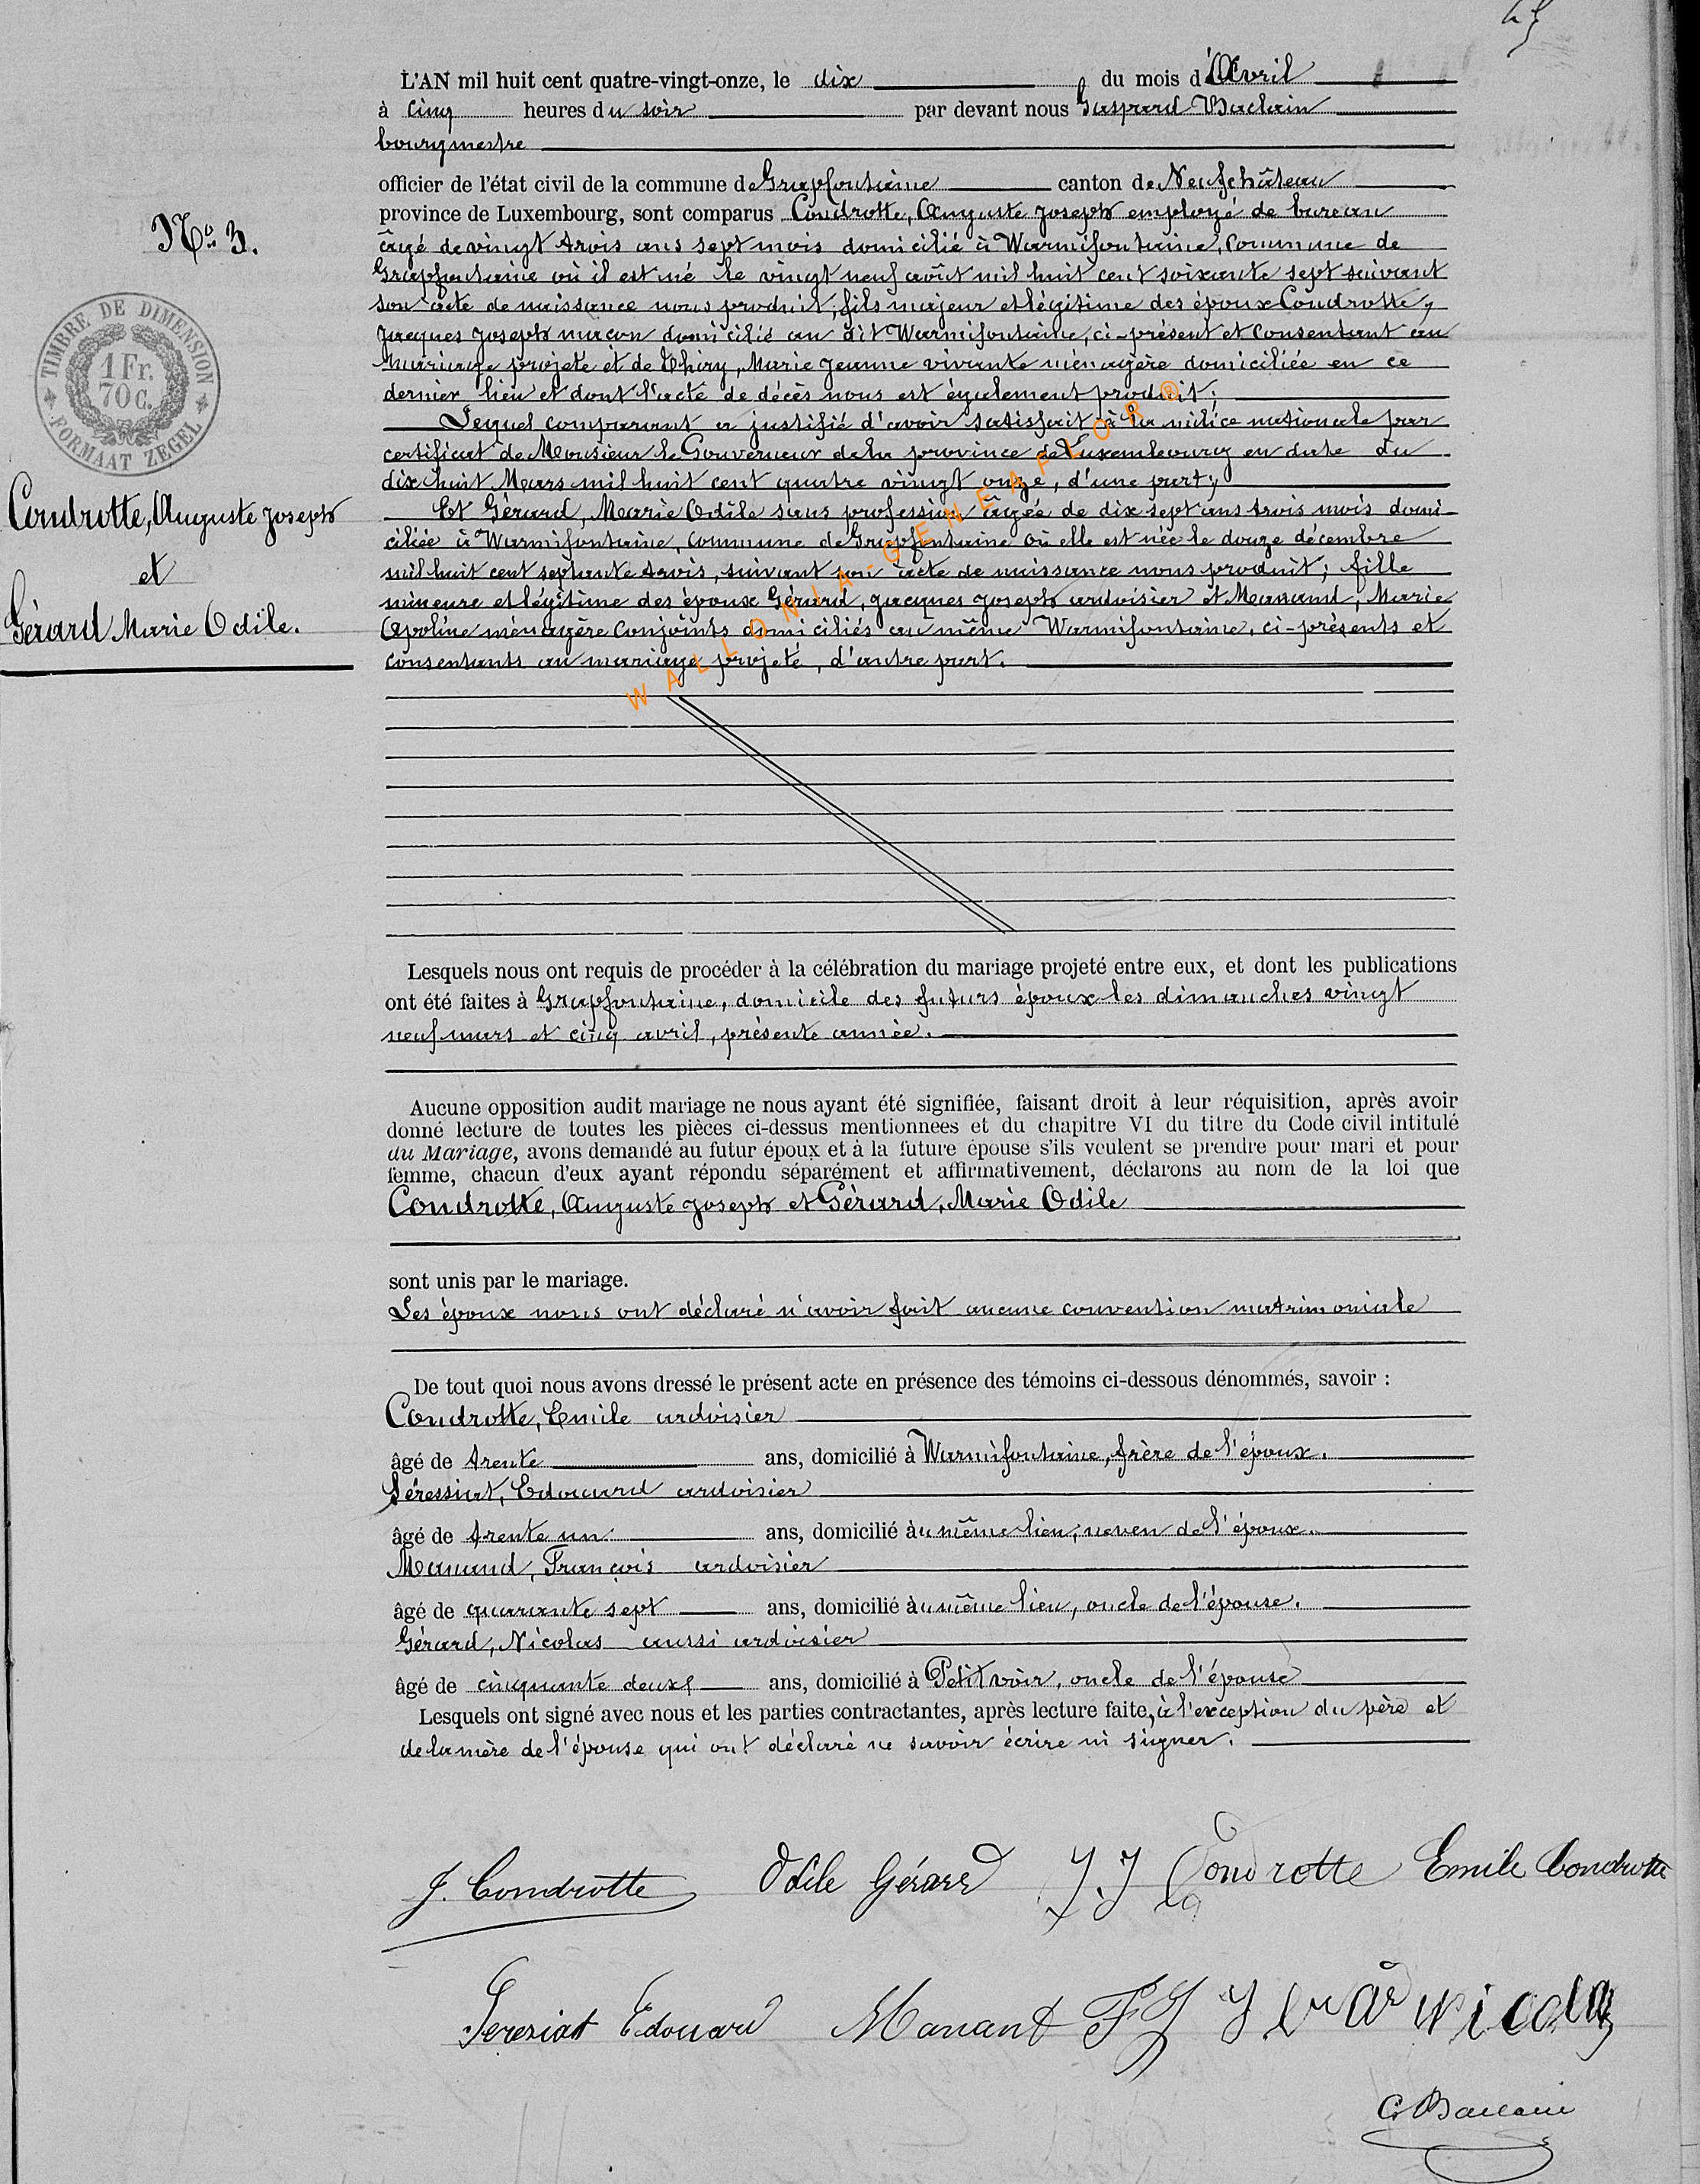 L'AN mil huit cent quatre-vingt-onze, le dix du mois d'Avril
à cinq heures du soir par devant nous Gaspard Baclain
bourgmestre
officier de l'état civil de la commune de Grapfontaine canton de Neufchâteau
province de Luxembourg, sont comparus Condrotte, Auguste Joseph employé de bureau
âgé de vingt trois ans sept mois domicilié à Warmifontaine, commune de
Grapfontaine où il est né le vingt neuf août mil huit cent soixante sept suivant
son acte de naissance nous produit; fils majeur et légitime des époux Condrotte,
Jacques Joseph maçon domicilié au dit Warmifontaine, ci-présent et consentant au
mariage projeté et de Thiry, Marie Jeanne vivante ménagère domiciliée en ce
dernier lieu et dont l'acte de décès nous est également produit;
Lequel comparant a justifié d'avoir satisfait à la milice nationale par
certificat de Monsieur le Gouverneur de la province de Luxembourg en date du
dix huit Mars mil huit cent quatre vingt onze, d'une part,
Et Gérard, Marie Odile sans profession âgée de dix sept ans trois mois domi-
ciliée à Warmifontaine, commune de Grapfontaine où elle est née le douze décembre
mil huit cent septante trois, suivant son acte de naissance nous produit; fille
mineure et légitime des époux Gérard, Jacques Joseph ardoisier et Manand, Marie
Apoline ménagère conjoints domiciliés au même Warmifontaine, ci-présents et
consentants au mariage projeté, d'autre part.
WALLONIA-GENEAFLOR®
No 3.
TIMBRE DE DIMENSION
1 Fr.
70 C.
FORMAAT ZEGEL
Condrotte, Auguste Joseph
et
Gérard Marie Odile.
Lesquels nous ont requis de procéder à la célébration du mariage projeté entre eux, et dont les publications
ont été faites à Grapfontaine, domicile des futurs époux les dimanches vingt
neuf mars et cinq avril, présente année.
Aucune opposition audit mariage ne nous ayant été signifiée, faisant droit à leur réquisition, après avoir
donné lecture de toutes les pièces ci-dessus mentionnees et du chapitre VI du titre du Code civil intitulé
du Mariage, avons demandé au futur époux et à la future épouse s'ils veulent se prendre pour mari et pour
femme, chacun d'eux ayant répondu séparément et affirmativement, déclarons au nom de la loi que
Condrotte, Auguste Joseph et Gérard, Marie Odile
sont unis par le mariage.
Les époux nous ont déclaré n'avoir fait aucune convention matrimoniale
De tout quoi nous avons dressé le présent acte en présence des témoins ci-dessous dénommés, savoir :
Condrotte, Emile ardoisier
âgé de trente ans, domicilié à Warmifontaine, frère de l'époux.
Séressiat, Edouard ardoisier
âgé de trente un ans, domicilié au même lieu, neveu de l'époux.
Manand, François ardoisier
âgé de quarante sept ans, domicilié au même lieu, oncle de l'épouse.
Gérard, Nicolas aussi ardoisier
âgé de cinquante deux ans, domicilié à Petitvoir, oncle de l'épouse
Lesquels ont signé avec nous et les parties contractantes, après lecture faite, à l'exception du père et
de la mère de l'épouse qui ont déclaré ne savoir écrire ni signer.
J. Condrotte Odile Gérard J.J Condrotte Emile Condrotte
Sereziat Edouard Manant F J nicolas
G. Baclain